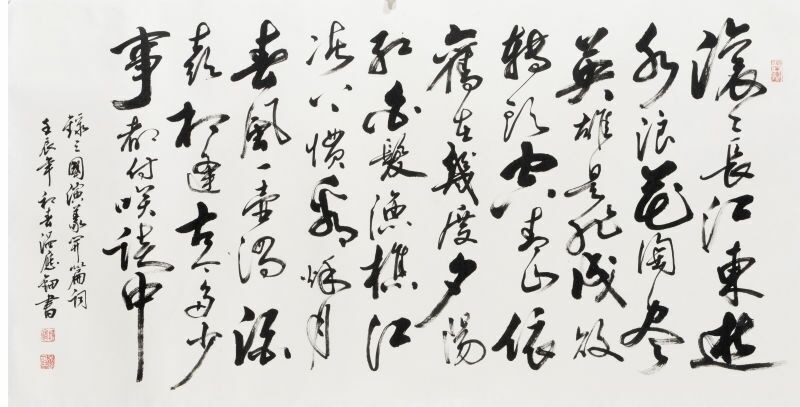 滚滚長江東逝
水浪花淘尽
英雄是非成敗
轉頭空青山依
舊在幾度夕陽
紅白髮漁樵江
渚上慣看秋月
春風一壶濁酒
喜相逢古今多少
事都付笑談中
錄三國演義開篇詞
壬辰年初春應書